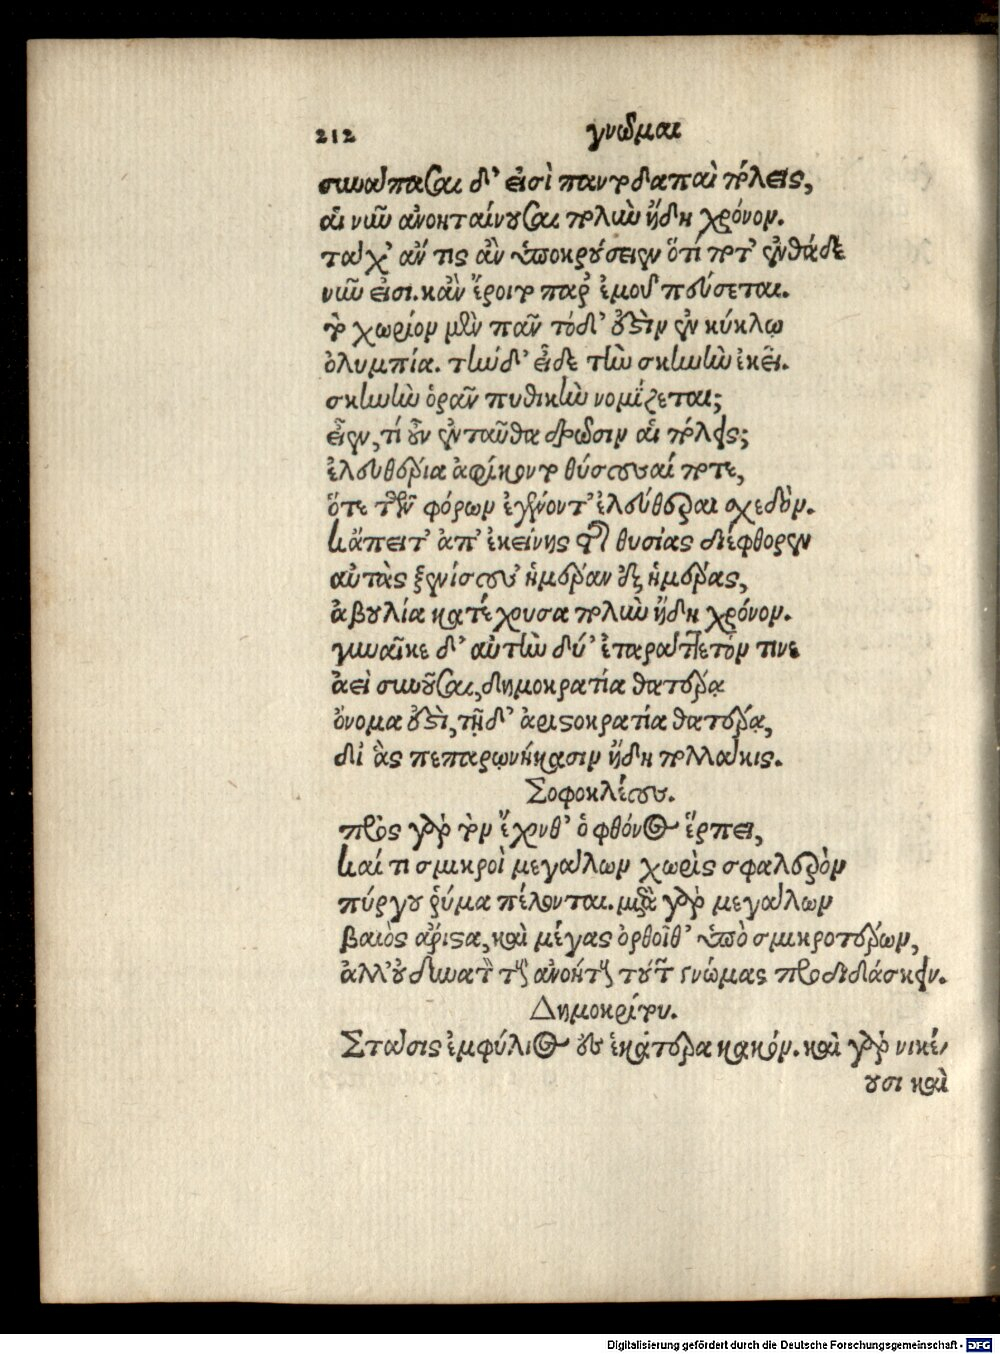 212 γνῶμαι
συνάπασαι δ' εἰσὶ παντοδαπαὶ πόλεις,
αἳ νῦν ἀνοηταίνουσαι πολὺν ἤδη χρόνον.
τάχ' ἄν τις ἂν ὑποκρούσειεν ὅτί ποτ' ἐνθάδε
νῦν εἰσι. κἂν ἔροιτο παρ' ἐμοῦ πεύσεται.
τὸ χωρίον μὲν πᾶν τόδ' ὀστὶν ἐν κύκλῳ
ὀλυμπία. τὴν δ' εἶδε τὴν σκηνὴν ἐκεῖ.
σκηνὴν ὁρᾶν πυθικὴν νομίζεται;
εἶεν, τί οὖν ἐνταῦθα δρῶσιν αἱ πόλεις;
ἐλευθέρια ἀφίκοντο θύσουσαί ποτε,
ὅτε τῶν φόρων ἐγένοντ' ἐλεύθεραι σχεδόν.
κἄπειτ' ἀπ' ἐκείνης τῆς θυσίας διέφθορεν
αὐτὰς ξενίζουσ' ἡμέραν ἐξ ἡμέρας,
ἀβουλία κατέχουσα πολὺν ἤδη χρόνον.
γυναῖκε δ' αὐτὴν δύ' ἐταράττετόν τινε
ἀεὶ συνοῦσαι, δημοκρατία θατέρᾳ
ὄνομα ὀστὶ, τῇ δ' ἀριστοκρατία θατέρᾳ,
δι' ἃς πεπαρῳνήκασιν ἤδη πολλάκις.
Σοφοκλέους.
πρὸς γὰρ τὸν ἔχονθ' ὁ φθόνος ἕρπει,
καί τι σμικροὶ μεγάλων χωρὶς σφαλερὸν
πύργου ῥύμα πέλονται. μετὰ γὰρ μεγάλων
βαιὸς ἄριστα, καὶ μέγας ὀρθοῖθ' ὑπὸ σμικροτέρων,
ἀλλ' οὐ δυνατὸν τοὺς ἀνοήτους τούτων γνώμας προδιδάσκειν.
Δημοκρίτου.
Στάσις ἐμφύλιος ἐς ἑκάτερα κακόν. καὶ γὰρ νικέ-
ουσι καὶ
Digitalisierung gefördert durch die Deutsche Forschungsgemeinschaft - DFG